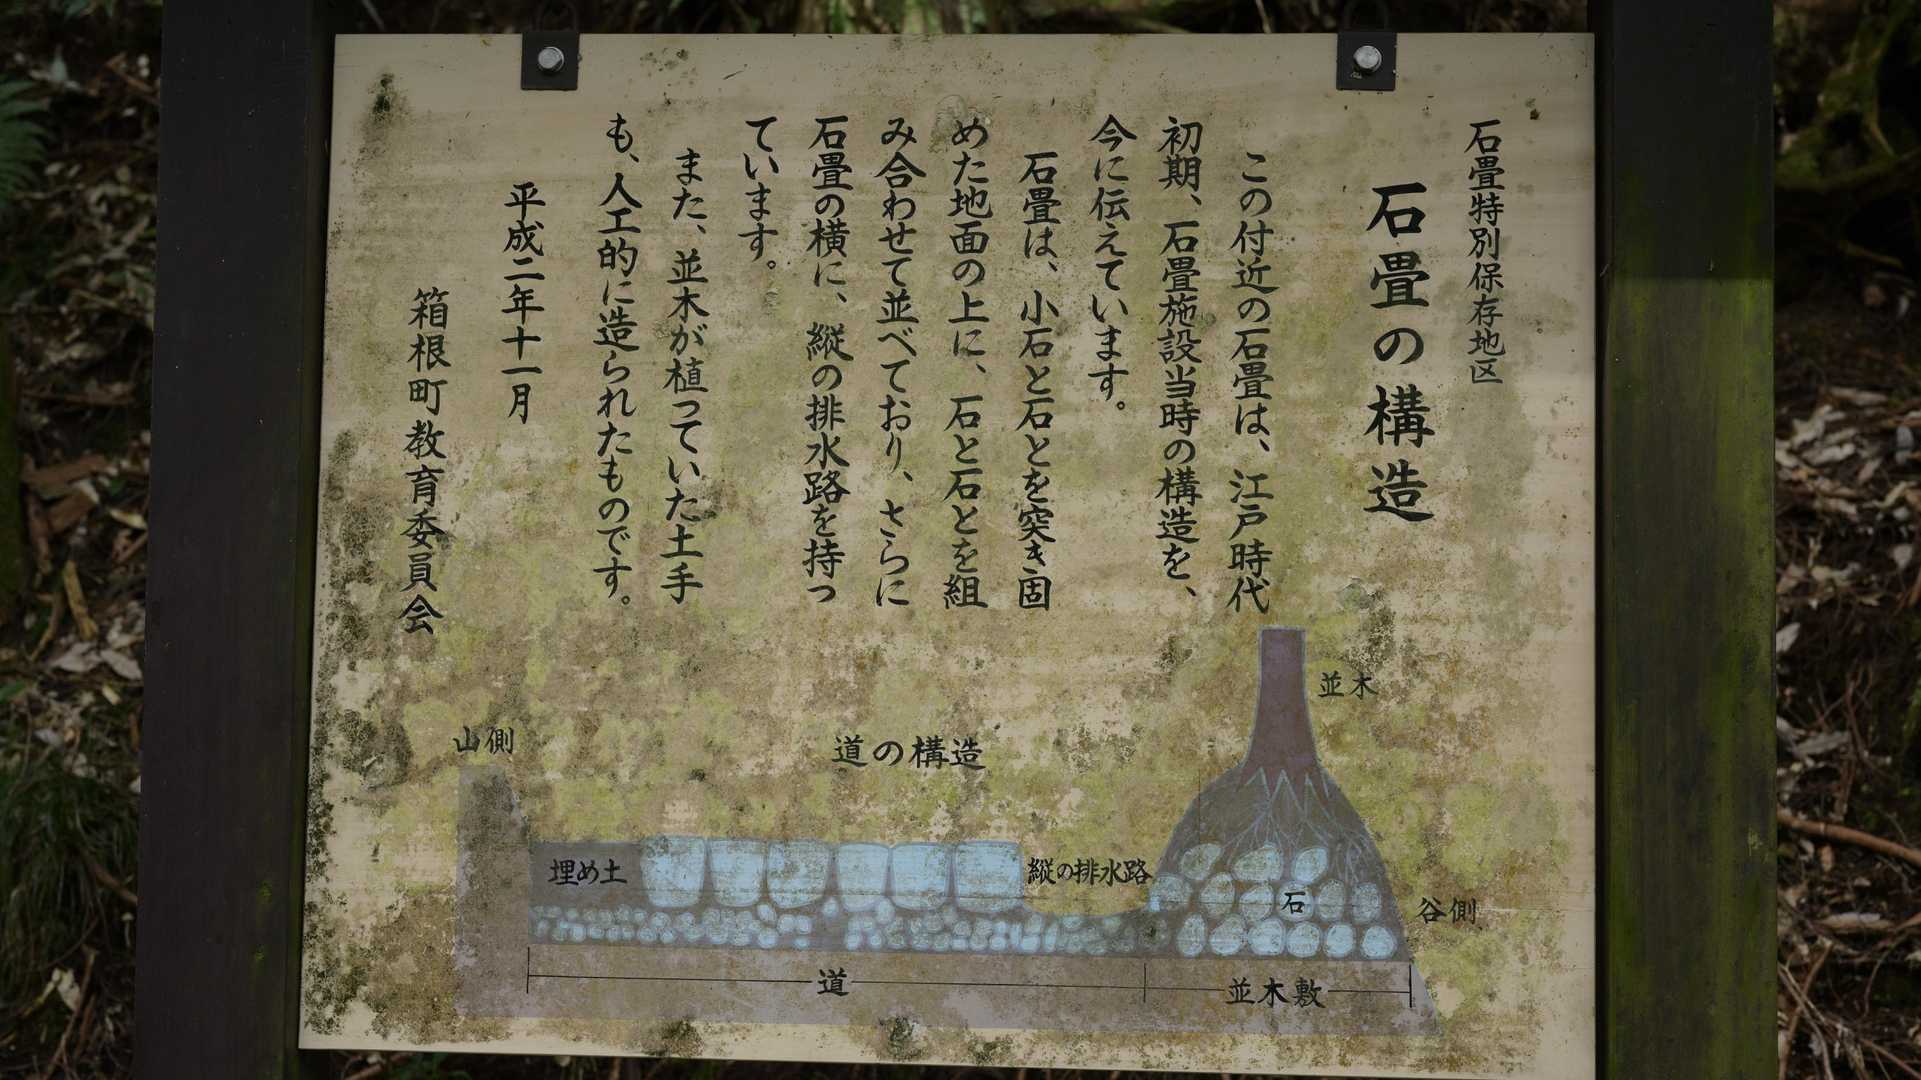 石畳特別保存地区
石畳の構造
この付近の石畳は、江戸時代
初期、石畳施設当時の構造を、
今に伝えています。
石畳は、小石と石とを突き固
めた地面の上に、石と石とを組
み合わせて並べており、さらに
石畳の横に、縦の排水路を持っ
ています。
また、並木が植っていた土手
も、人工的に造られたものです。
平成二年十一月
箱根町教育委員会
道の構造
山側
並木
埋め土
縦の排水路
石
谷側
道
並木敷